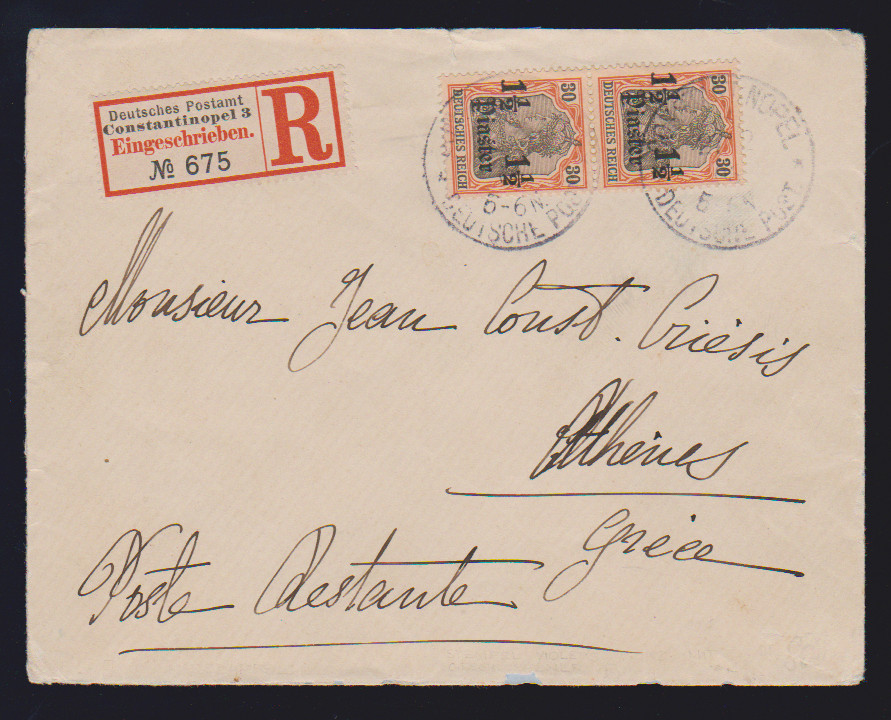 Deutsches Postamt
Constantinopel 3
Eingeschrieben.
№ 675
R
30 30
DEUTSCHES REICH
1½ 1½
Piaster
30 30
DEUTSCHES REICH
1½ 1½
Piaster
5-6N.
DEUTSCHE POST
NOPEL *
5
DEUTSCHE POST
Monsieur Jean Const. Criésis
Athènes
Grèce
Poste Restante